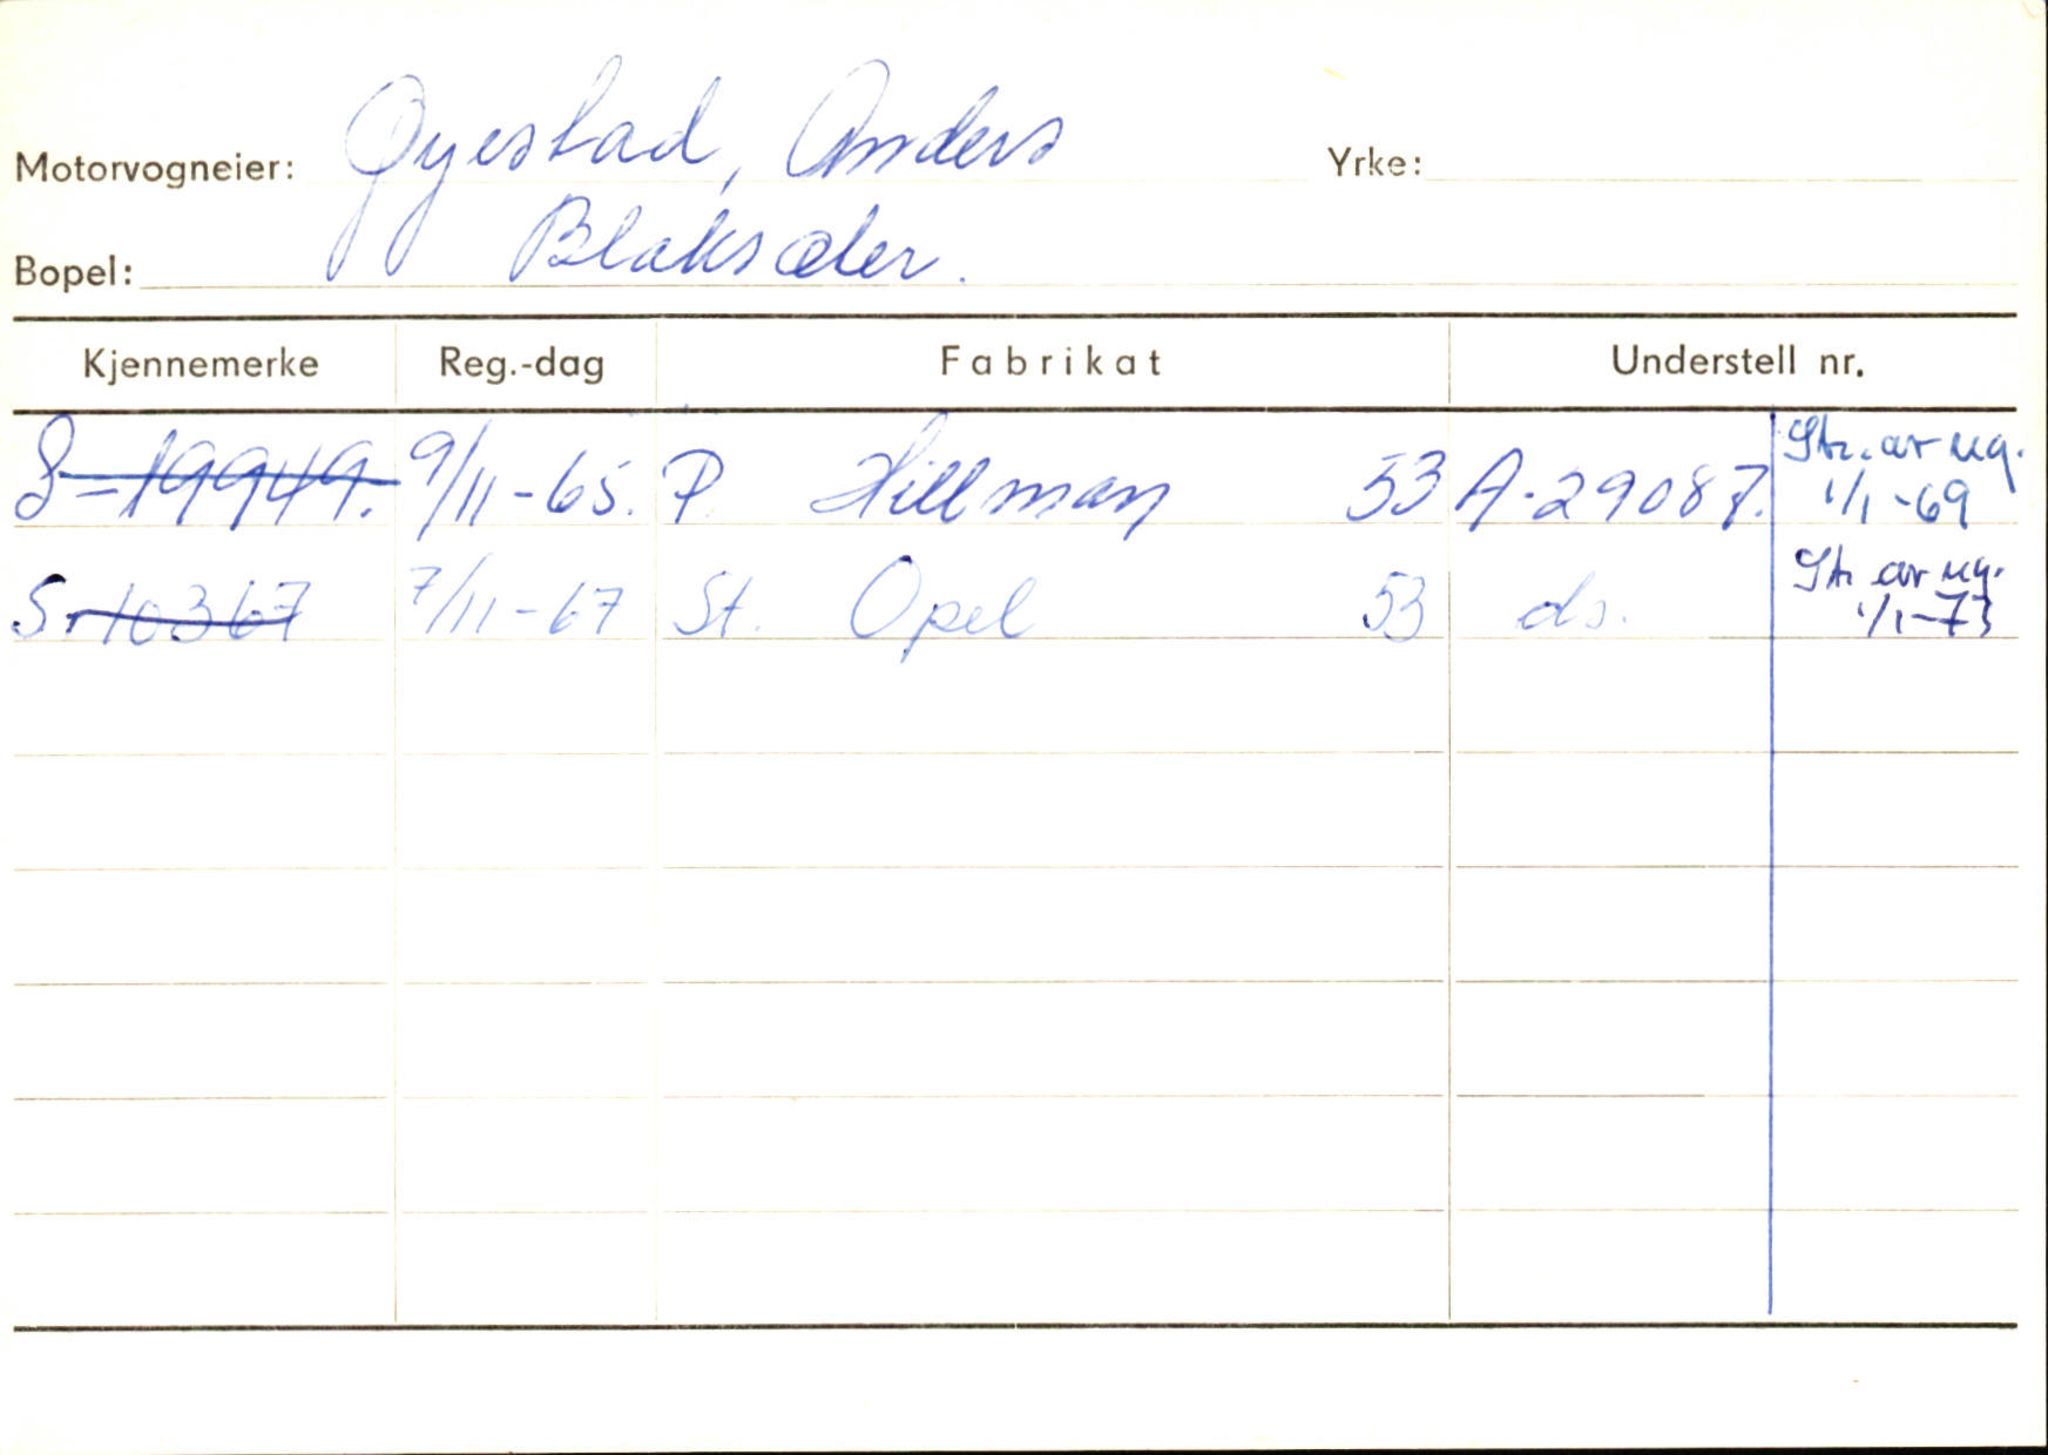 Motorvogneier: Øyestad, Anders Yrke:
Bopel: Blaksæter.
Kjennemerke Reg.-dag Fabrikat Understell nr.
S-19949. 9/11-65. P. Hillman 53 A-29087. Str. av reg. 1/1-69
S-10367 7/11-67 St. Opel 53 ds. Str. av reg. 1/1-73